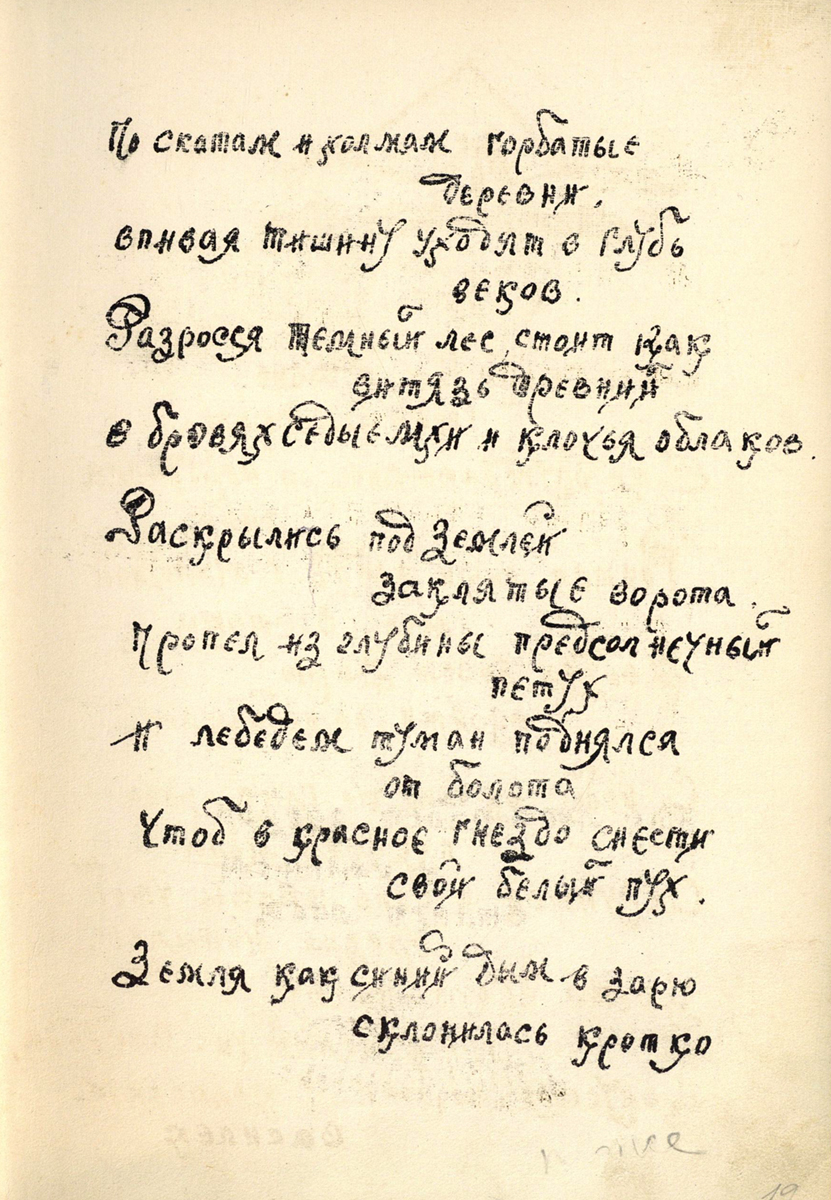 По скатам и холмам горбатые
деревни,
впивая тишину уходят в глубь
веков.
Разросся темный лес, стоит как
витязь древний
в бровях седые мхи и клочья облаков.
Раскрылись под землей
заклятые ворота.
Пропел из глубины предсолнечный
петух
И лебедем туман поднялся
от болота
Чтоб в красное гнездо снести
свой белый пух.
Земля как синий дым в зарю
склонилась кротко